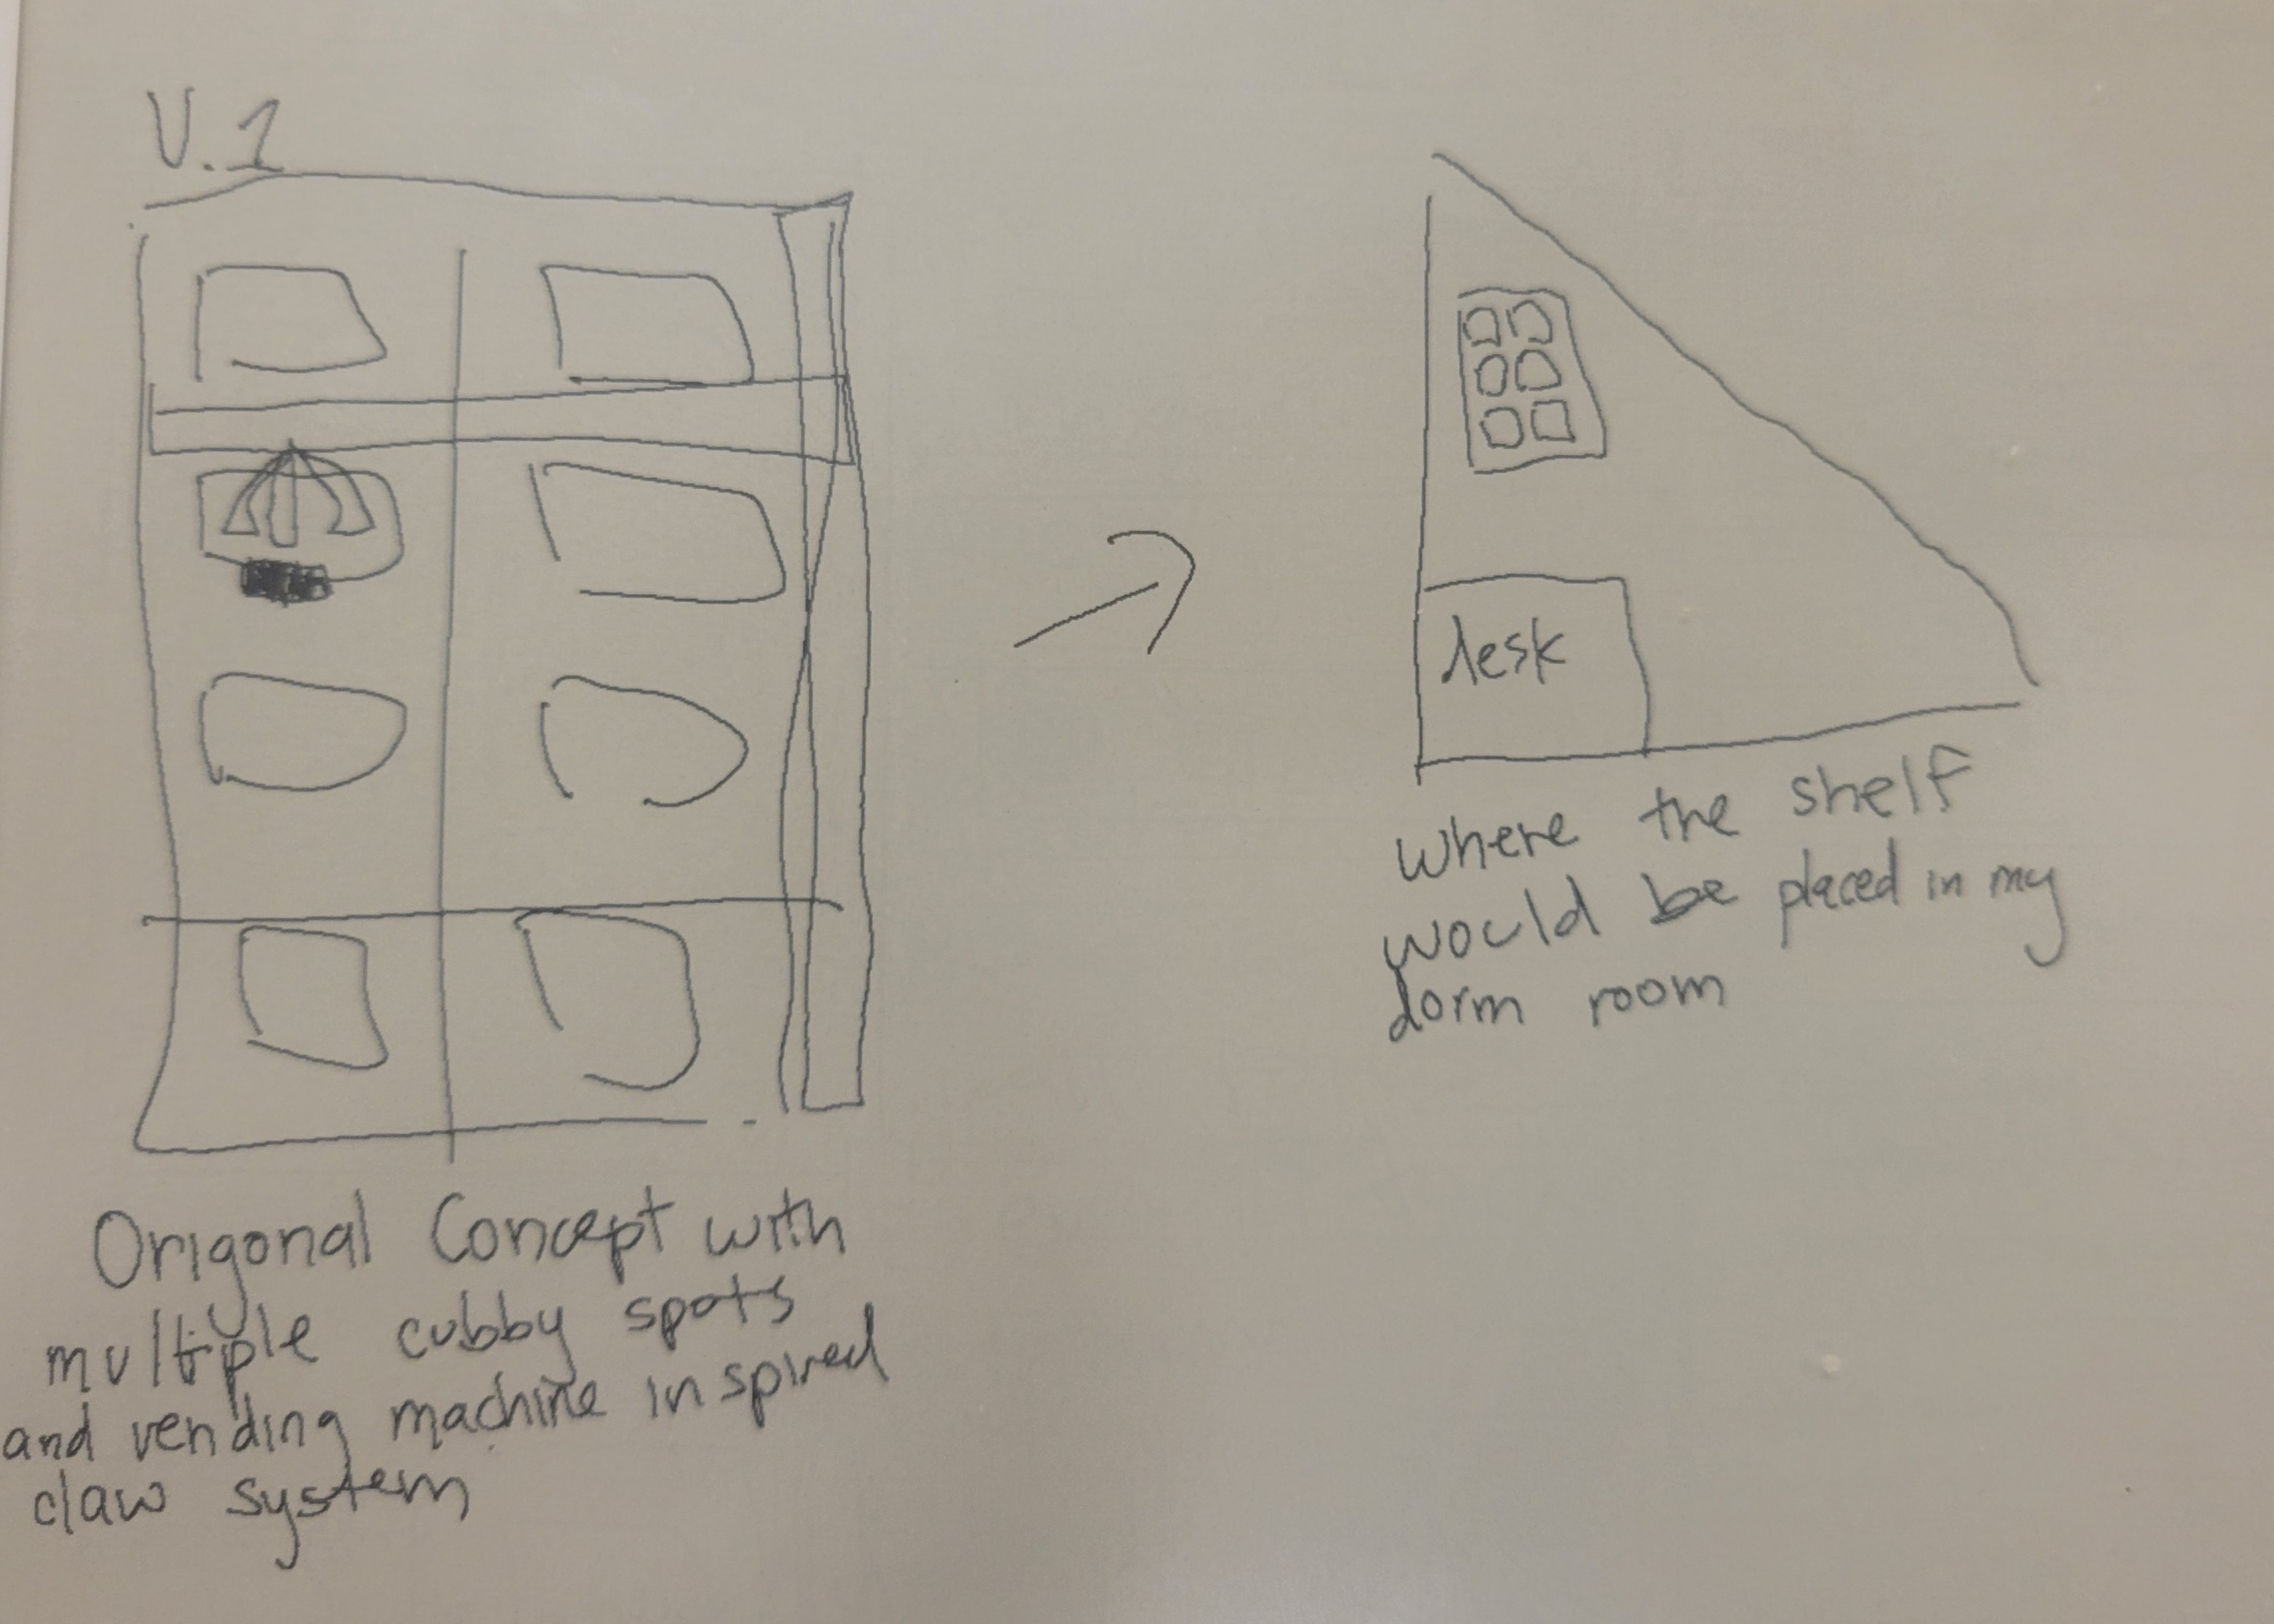 V.1
Origonal Concept with
multiple cubby spots
and vending machine inspired
claw system
desk
where the shelf
would be placed in my
dorm room